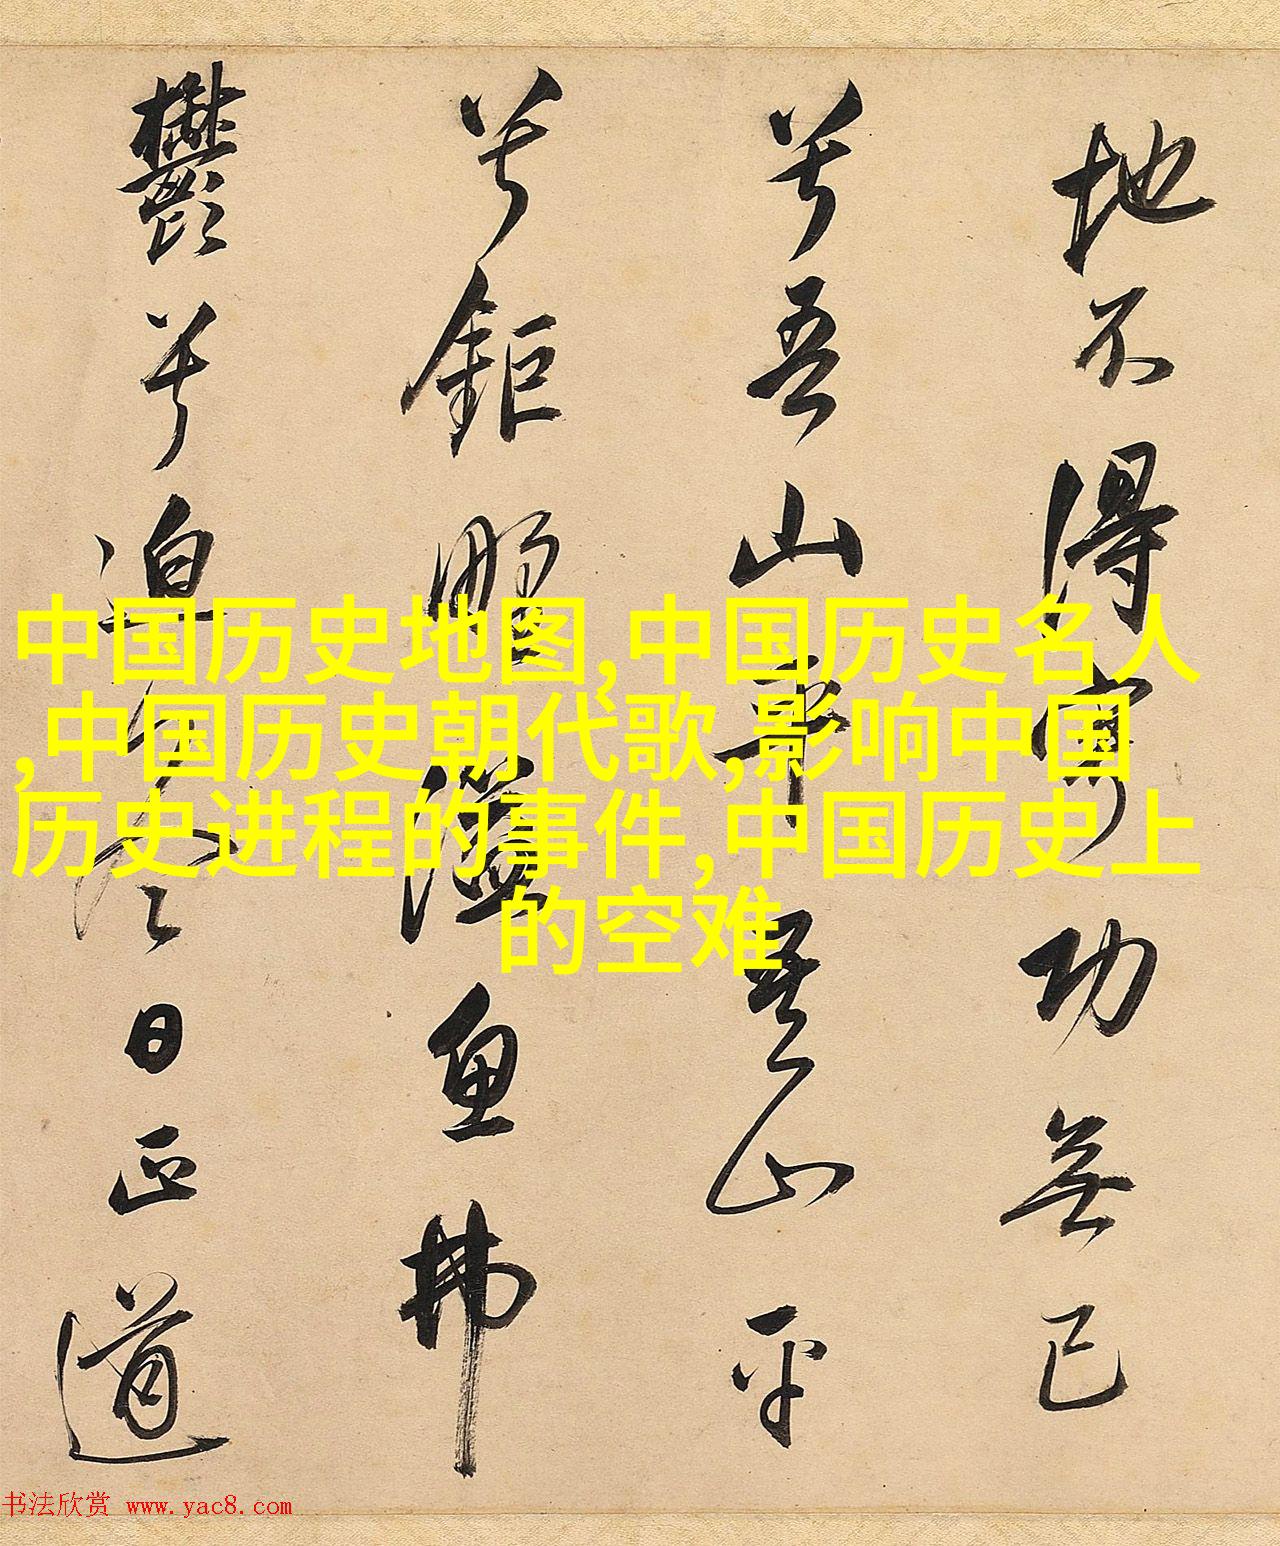 地不得寧功無已
兮吾山平吾山平
兮鉅野溢魚拂
鬱兮迫冬日正道
中国历史地图,中国历史名人
,中国历史朝代歌,影响中国
历史进程的事件,中国历史上
的空难
书法欣赏 www.yac8.com